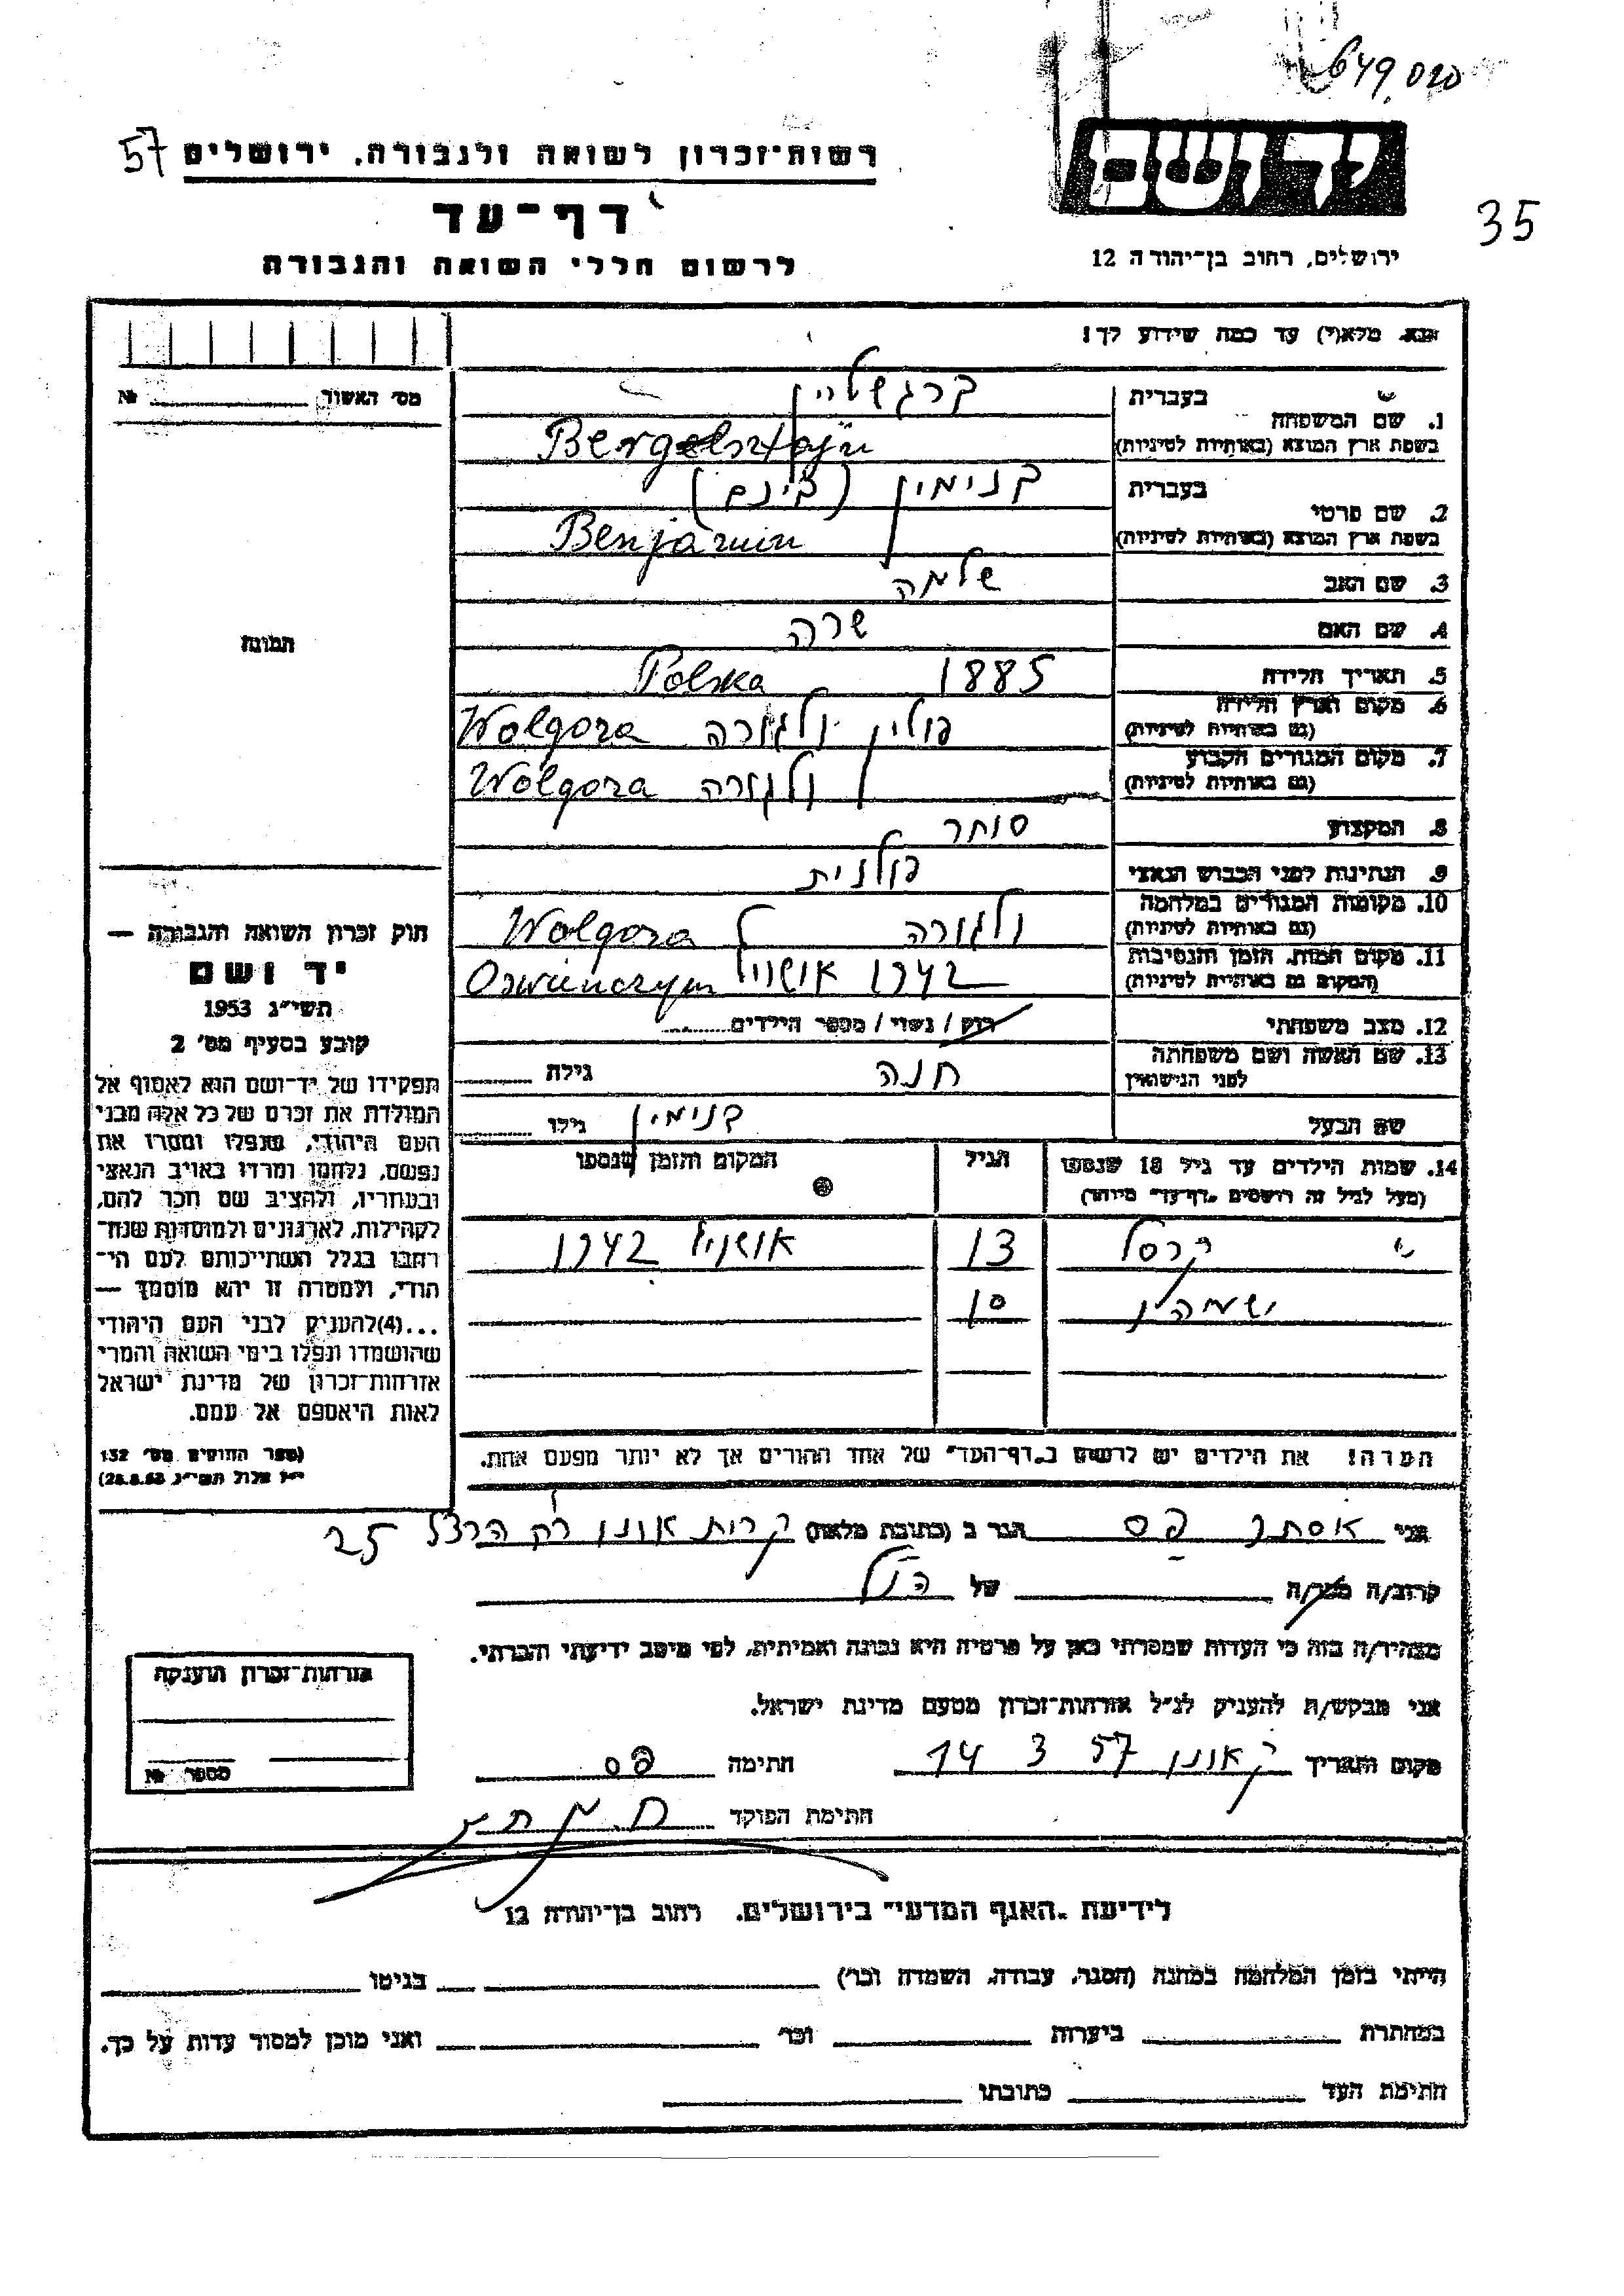 649,020
יד ושם
35
ירושלים, רחוב בן־יהודה 12
רשות־זכרון לשואה ולגבורה, ירושלים 57
דף־עד
לרשום חללי השואה והגבורה
נא מלא(י) עד כמה שידוע לך!
מס׳ האשור № 
1. שם המשפחה
בעברית ברגשטיין
בשפת ארץ המוצא (באותיות לטיניות) Bergelsztajn
2. שם פרטי
בעברית בנימין (בינם)
בשפת ארץ המוצא (באותיות לטיניות) Benjamin
3. שם האב שלמה
4. שם האם שרה
5. תאריך הלידה 1885 Polska
6. מקום וארץ הלידה (גם באותיות לטיניות) פולין ולגורה Wolgora
7. מקום המגורים הקבוע (גם באותיות לטיניות) ולגורה Wolgora
8. המקצוע סוחר
9. הנתינות לפני הכבוש הנאצי פולנית
10. מקומות המגורים במלחמה (גם באותיות לטיניות) ולגורה Wolgora
11. מקום המות, הזמן והנסיבות (המקום גם באותיות לטיניות) 1942
12. מצב משפחתי רווק / נשוי / מספר הילדים
13. שם האשה ושם משפחתה לפני הנישואין חנה גילה
שם הבעל בנימין גילו
14. שמות הילדים עד גיל 18 שנספו (מעל לגיל זה רושמים „דף־עד״ מיוחד) הגיל המקום והזמן שנספו
13 1942
10
הערה! את הילדים יש לרשום ב„דף־העד״ של אחד ההורים אך לא יותר מפעם אחת.
התמונה
חוק זכרון השואה והגבורה —
יד ושם
תשי״ג 1953
קובע בסעיף מס׳ 2
תפקידו של יד־ושם הוא לאסוף אל
המולדת את זכרם של כל אלה מבני
העם היהודי, שנפלו ומסרו את
נפשם, נלחמו ומרדו באויב הנאצי
ובעוזריו, ולהציב שם וזכר להם,
לקהילות, לארגונים ולמוסדות שנח־
רבו בגלל השתייכותם לעם הי־
הודי, ולמטרה זו יהא מוסמך —
...(4)להעניק לבני העם היהודי
שהושמדו ונפלו בימי השואה והמרי
אזרחות־זכרון של מדינת ישראל
לאות היאספם אל עמם.
(ספר החוקים מס׳ 132
י״ז אלול תשי״ג 28.8.53)
אני אסתר פס הגר ב (כתובת מלאה) קרית אונו רח הרצל 25
קרוב/ה מכר/ה של הנ״ל
מצהיר/ה בזה כי העדות שמסרתי כאן על פרטיה היא נכונה ואמיתית, לפי מיטב ידיעתי והכרתי.
אני מבקש/ת להעניק לנ״ל אזרחות־זכרון מטעם מדינת ישראל.
מקום ותאריך ק אונו 14 3 57 חתימה פס
חתימת הפוקד
אזרחות־זכרון הוענקה
מספר №
לידיעת „האגף המדעי״ בירושלים. רחוב בן־יהודה 12
הייתי בזמן המלחמה במחנה (הסגר, עבודה, השמדה וכו׳) בגיטו
במחתרת ביערות וכו׳ ואני מוכן למסור עדות על כך.
חתימת העד כתובתו